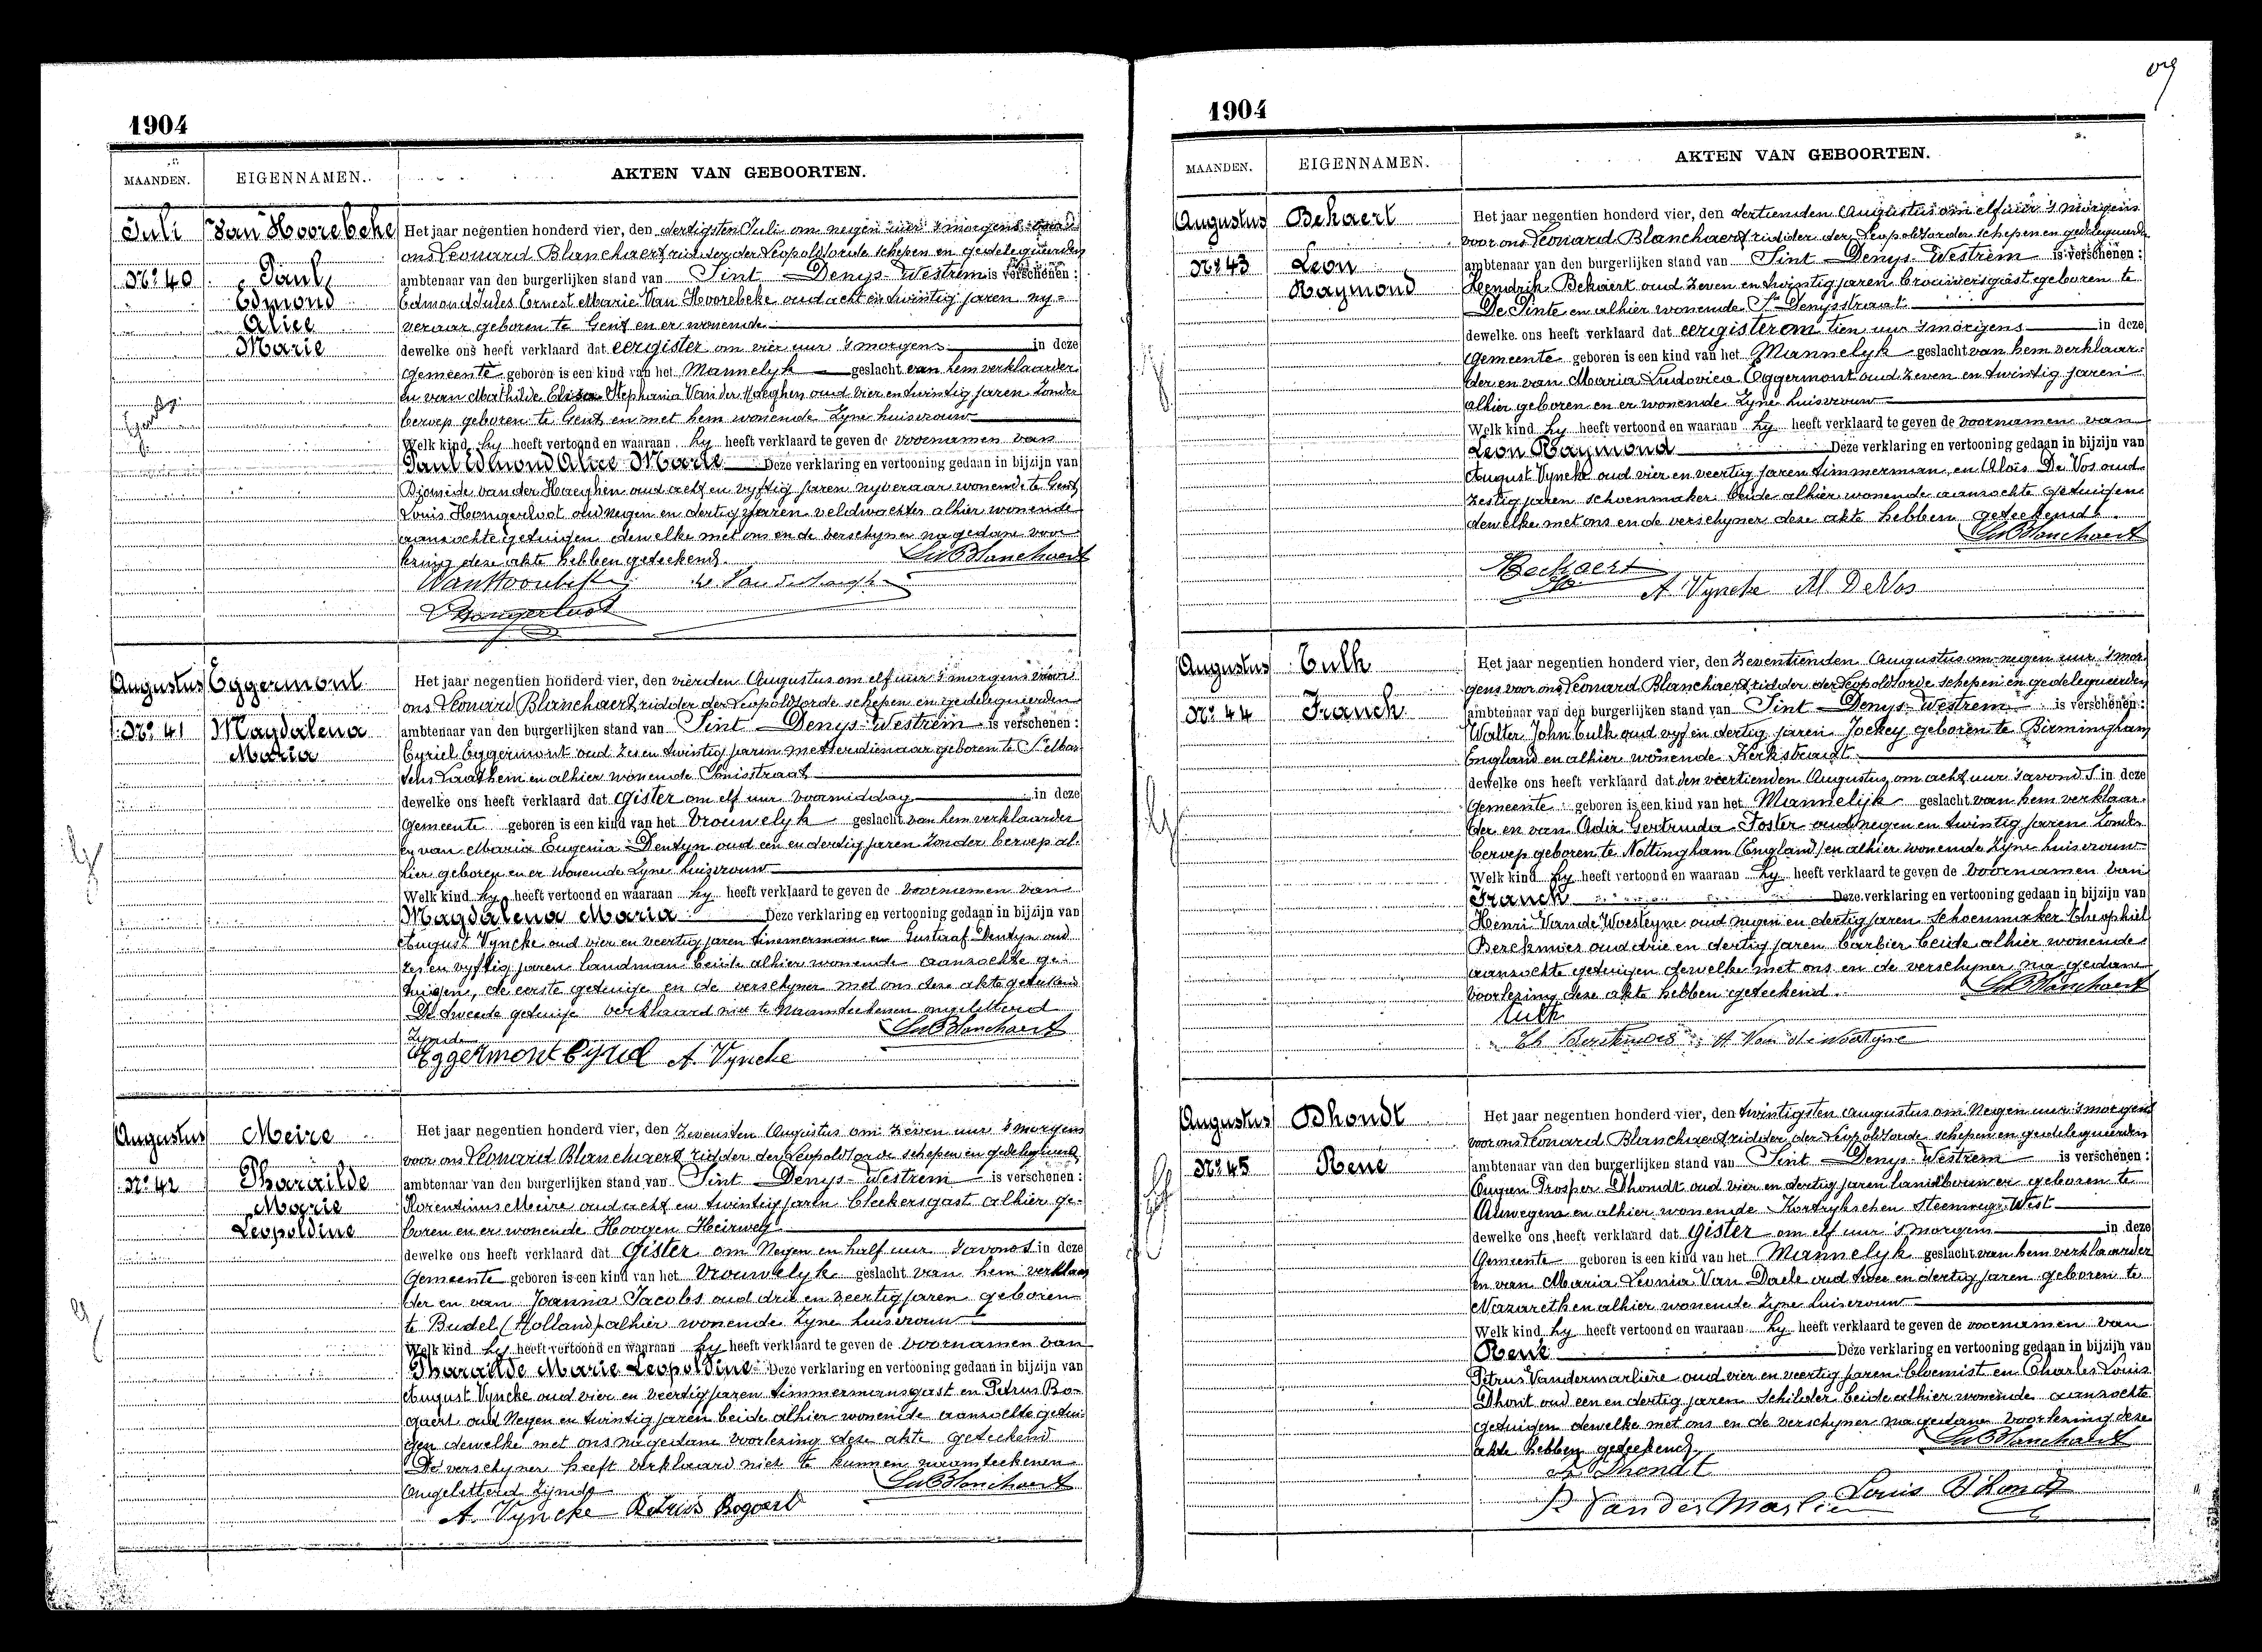 1904
MAANDEN. EIGENNAMEN. AKTEN VAN GEBOORTEN.
Juli Van Hoorebeke Het jaar negentien honderd vier, den dertigsten Juli om negen uur 's morgens voor
ons Leonard Blanchaert ridder der Leopoldsorde schepen en gedelegueerden
No 40 Paul ambtenaar van den burgerlijken stand van Sint Denys-Westrem is verschenen :
Edmond Edmond Jules Ernest Marie Van Hoorebeke oud acht en twintig jaren ny-
Alice veraar geboren te Gent en er wonende
Marie dewelke ons heeft verklaard dat eergister om vier uur 's morgens in deze
Gemeente geboren is een kind van het Mannelyk geslacht van hem verklaarder
en van Mathilde Elisa Stephania Van der Haeghen oud vier en twintig jaren zonder
beroep geboren te Gent en met hem wonende zyne huisvrouw
Welk kind hy heeft vertoond en waaraan hy heeft verklaard te geven de voornamen van
Paul Edmond Alice Marie Deze verklaring en vertooning gedaan in bijzijn van
Diomède van der Haeghen oud acht en vyftig jaren nyveraar wonende te Gent
Louis Hongerloot oud negen en dertig jaren veldwachter alhier wonende
aanzochte getuigen dewelke met ons en de verschyner na gedane voor-
lezing deze akte hebben geteekend LBlanchaert
VanHoorebeke
L Hongerloot
Augustus Eggermont Het jaar negentien honderd vier, den vierden Augustus om elf uur 's morgens voor
ons Leonard Blanchaert ridder der Leopoldsorde schepen en gedelegueerden
No 41 Magdalena ambtenaar van den burgerlijken stand van Sint Denys-Westrem is verschenen :
Maria Cyriel Eggermont oud zes en twintig jaren metserdienaar geboren te St Mar-
tens Laathem en alhier wonende
dewelke ons heeft verklaard dat gister om elf uur voormiddag in deze
Gemeente geboren is een kind van het Vrouwelyk geslacht van hem verklaarder
en van Maria Eugenia Dentyn oud een en dertig jaren zonder beroep al-
hier geboren en er wonende zyne huisvrouw
Welk kind hy heeft vertoond en waaraan hy heeft verklaard te geven de voornamen van
Magdalena Maria Deze verklaring en vertooning gedaan in bijzijn van
August Vyncke oud vier en veertig jaren timmerman en Gustaaf Dentyn oud
zes en vyftig jaren landman beide alhier wonende aanzochte ge-
tuigen, de eerste getuige en de verschyner met ons deze akte geteekend
De tweede getuige verklaard niet te naamteekenen ongeletterd
zynde LBlanchaert
Eggermont Cyriel A. Vyncke
Augustus Meire Het jaar negentien honderd vier, den zevensten Augustus om zeven uur 's morgens
voor ons Leonard Blanchaert ridder der Leopoldsorde schepen en gedelegueerde
No 42 Pharaïlde ambtenaar van den burgerlijken stand van Sint Denys-Westrem is verschenen :
Marie Florentinus Meire oud acht en twintig jaren bleekersgast alhier ge-
Leopoldine boren en er wonende Hoogen Heirweg
dewelke ons heeft verklaard dat gister om negen en half uur 's avonds in deze
Gemeente geboren is een kind van het Vrouwelyk geslacht van hem verklaar
der en van Joanna Jacobs oud drie en veertig jaren geboren
te Budel (Holland) alhier wonende zyne huisvrouw
Welk kind hy heeft vertoond en waaraan hy heeft verklaard te geven de voornamen van
Pharaïlde Marie Leopoldine Deze verklaring en vertooning gedaan in bijzijn van
August Vyncke oud vier en veertig jaren timmermansgast en Petrus Bo-
gaert oud negen en twintig jaren beide alhier wonende aanzochte getui-
gen dewelke met ons na gedane voorlezing deze akte geteekend
De verschyner heeft verklaard niet te kunnen naamteekenen
ongeletterd zynde LBlanchaert
A. Vyncke Petrus Bogaert
1904
MAANDEN. EIGENNAMEN. AKTEN VAN GEBOORTEN.
Augustus Bekaert Het jaar negentien honderd vier, den dertienden Augustus om elf uur 's morgens
voor ons Leonard Blanchaert ridder der Leopoldsorde schepen en gedelegueerde
No 43 Leon ambtenaar van den burgerlijken stand van Sint Denys-Westrem is verschenen :
Raymond Hendrik Bekaert oud zeven en twintig jaren brouwersgast geboren te
De Pinte en alhier wonende St Denysstraat
dewelke ons heeft verklaard dat eergister om tien uur 's morgens in deze
Gemeente geboren is een kind van het Mannelyk geslacht van hem verklaar-
der en van Maria Ludovica Eggermont oud zeven en twintig jaren
alhier geboren en er wonende zyne huisvrouw
Welk kind hy heeft vertoond en waaraan hy heeft verklaard te geven de voornamen van
Leon Raymond Deze verklaring en vertooning gedaan in bijzijn van
August Vyncke oud vier en veertig jaren timmerman, en Aloïs De Vos oud
zestig jaren schoenmaker beide alhier wonende aanzochte getuigen
dewelke met ons en de verschyner deze akte hebben geteekend.
LBlanchaert
Beckaert
A Vyncke Al. DeVos
Augustus Culk Het jaar negentien honderd vier, den zeventienden Augustus om negen uur 's mor-
gens voor ons Leonard Blanchaert ridder der Leopoldsorde schepen en gedelegueerden
No 44 Franck ambtenaar van den burgerlijken stand van Sint Denys-Westrem is verschenen :
Walter John Culk oud vyf en dertig jaren Jockey geboren te Birmingham
England en alhier wonende Kerkstraat
dewelke ons heeft verklaard dat den veertienden Augustus om acht uur 's avonds in deze
Gemeente geboren is een kind van het Mannelijk geslacht van hem verklaar-
der en van Ada Gertruda Foster oud negen en twintig jaren zonder
beroep geboren te Nottingham (England) en alhier wonende zyne huisvrouw
Welk kind hy heeft vertoond en waaraan hy heeft verklaard te geven de voornamen van
Franck Deze verklaring en vertooning gedaan in bijzijn van
Henri Van de Woesteyne oud negen en dertig jaren schoenmaker Theophiel
Berckmoes oud drie en dertig jaren barbier beide alhier wonende
aanzochte getuigen dewelke met ons en de verschyner na gedane
voorlezing deze akte hebben geteekend. LBlanchaert
Culk
Th Berckmoes H Van de Woestyne
Augustus Dhondt Het jaar negentien honderd vier, den twintigsten augustus om negen uur 's morgens
voor ons Leonard Blanchaert ridder der Leopoldsorde schepen en gedelegueerden
No 45 René ambtenaar van den burgerlijken stand van Sint Denys-Westrem is verschenen :
Eugeen Prosper Dhondt oud vier en dertig jaren landbouwer geboren te
Auwegem en alhier wonende Kortrykschen Steenweg West
dewelke ons heeft verklaard dat gister om elf uur 's morgens in deze
Gemeente geboren is een kind van het Mannelyk geslacht van hem verklaarder
en van Maria Leonia Van Daele oud twee en dertig jaren geboren te
Nazareth en alhier wonende zyne huisvrouw
Welk kind hy heeft vertoond en waaraan hy heeft verklaard te geven de voornamen van
René Deze verklaring en vertooning gedaan in bijzijn van
Petrus Vandermarlière oud vier en veertig jaren bloemist en Charles Louis
Dhont oud een en dertig jaren schilder beide alhier wonende aanzochte
getuigen dewelke met ons en de verschyner na gedane voorlezing deze
akte hebben geteekend. LBlanchaert
Dhondt
P Van der Marlier Louis D'hondt